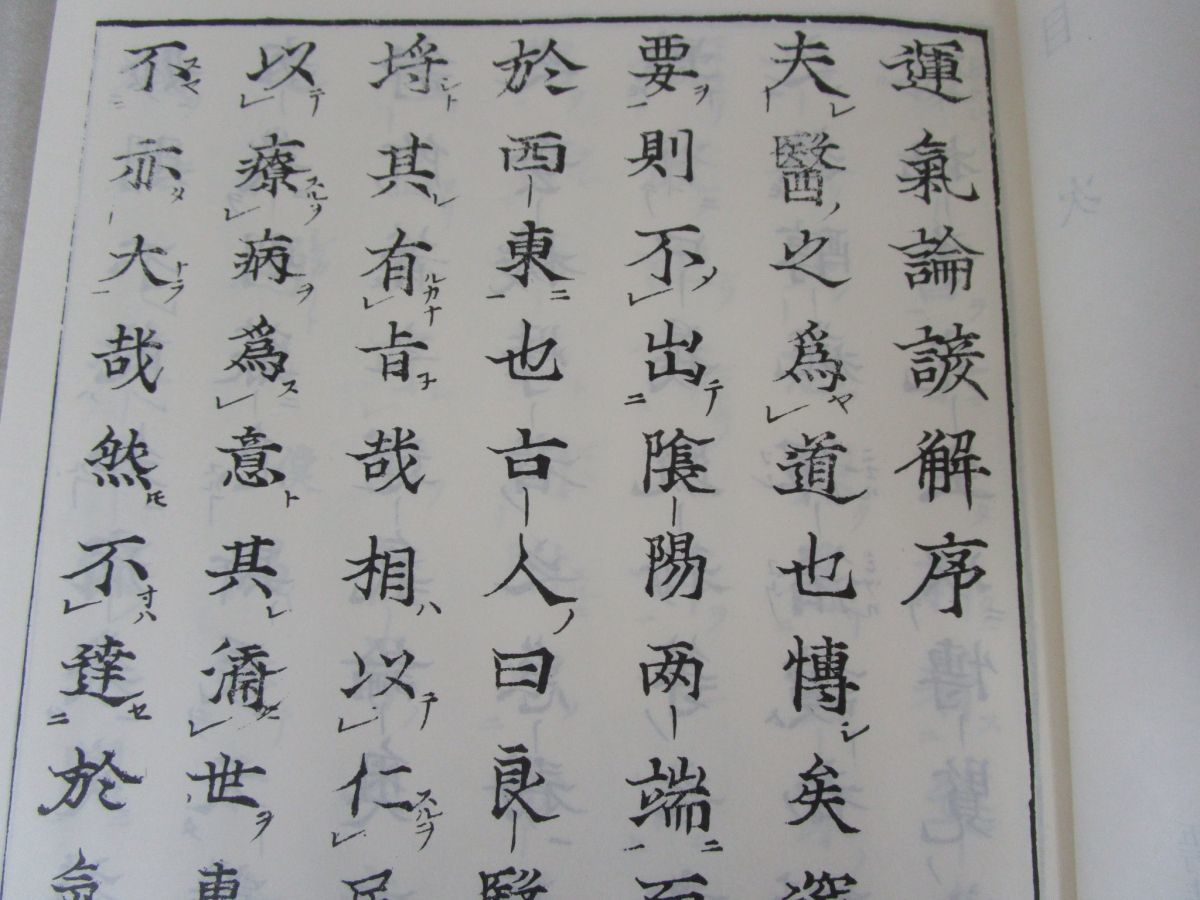 目次
運氣論諺解序
夫醫之爲道也愽矣深
要則不出陰陽两端而
於西東也古人曰良醫
埒其有旨哉相以仁
以療病爲意其濟世
不亦大哉然不達於氣